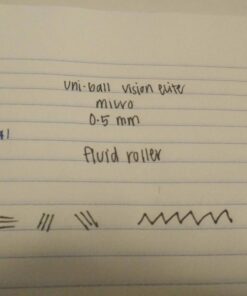 uni-ball vision eliter
micro
0.5 mm
#1
fluid roller